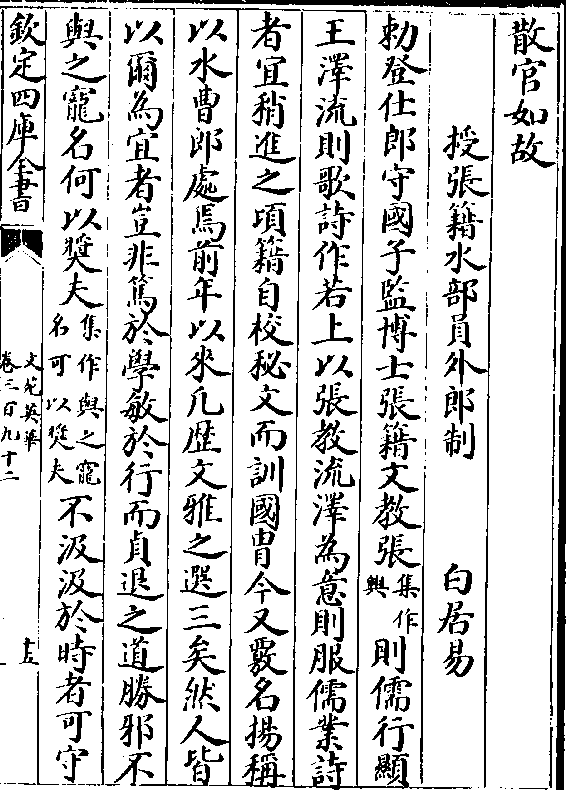 散官如故
授張籍水部員外郎制 白居易
勅登仕郎守國子監博士張籍文教張集作興則儒行顯
王澤流則歌詩作若上以張教流澤為意則服儒業詩
者宜稍進之頃籍自校秘文而訓國胄今又覈名揚稱
以水曹郎處焉前年以來凡歴文雅之選三矣然人皆
以爾為宜者豈非篤於學敏於行而貞退之道勝邪不
與之寵名何以奬夫集作與之寵名可以奬夫不汲汲於時者可守
欽定四庫全書
文苑英華
卷三百九十二
十五